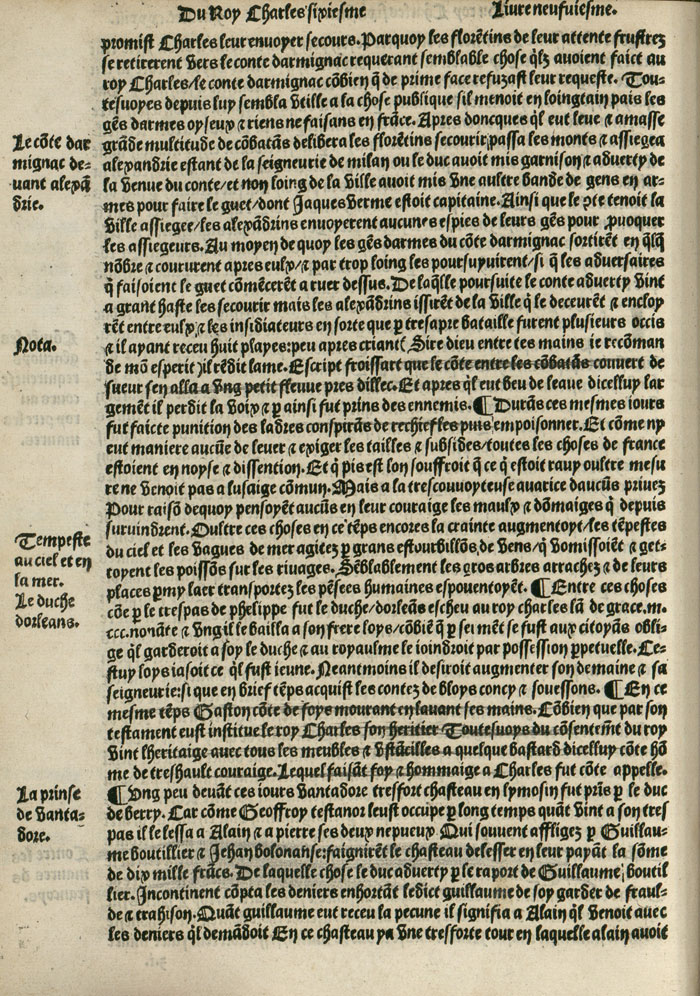 Du Roy Charles sixiesme
Livre neufuiesme.
promist Charles leur enuoyer secours. Parquoy les florẽtins de leur attente frustrez
se retirerent vers le conte darmignac requerant semblable chose q̃lz auoient faict au
roy Charles/le conte darmignac cõbien q̃ de prime face refuzast leur requeste. Tou-
tesuoyes depuis luy sembla vtille a la chose publique sil menoit en loingtain pais les
gẽs darmes oyseux ⁊ riens ne faisans en frãce. Apres doncques q̃l eut leue ⁊ amasse
Le cõte dar
mignac de-
uant alexã
drie.
grãde multitude de cõbatãs delibera les florẽtins secourir/passa les monts ⁊ assiegea
alexandrie estant de la seigneurie de milan ou le duc auoit mis garnison ⁊ aduerty de
la venue du conte/et non loing de la ville auoit mis vne aultre bande de gens en ar-
mes pour faire le guet/dont Jaques verme estoit capitaine. Ainsi que le ꝯte tenoit la
ville assiegee/les alexãdrins enuoyerent aucunes espies de leurs gẽs pour ꝓuoquer
les assiegeurs. Au moyen de quoy les gẽs darmes du cõte darmignac sortirẽt en q̃lq̃
nõbre ⁊ coururent apres eulx/⁊ par trop loing les poursuyuirent/si q̃ les aduersaires
q̃ faisoient le guet cõmẽcerẽt a ruer dessus. De laq̃lle poursuite le conte aduerty vint
a grant haste les secourir mais les alexãdrins issirẽt de la ville q̃ le deceurẽt ⁊ encloy
rẽt entre eulx ⁊ les insidiateurs en sorte que ꝑ tresapre bataille furent plusieurs occis
Nota.
⁊ il ayant receu huit playes: peu apres criant( Sire dieu entre tes mains ie recõman
de mõ esperit )il rẽdit lame. Escript froissart que le cõte entre les cõbatãs couuert de
sueur sen alla a vng petit fleuue pres dillec. Et apres q̃l eut beu de leaue dicelluy lar
gemẽt il perdit la voix ⁊ ꝑ ainsi fut prins des ennemis. ¶ Durãs ces mesmes iours
fut faicte punition des ladres conspirãs de rechief les puis empoisonner. Et cõme ny
eut maniere aucũe de leuer ⁊ exiger les tailles ⁊ subsides/toutes les choses de france
estoient en noyse ⁊ dissention. Et q̃ pis est lon souffroit q̃ ce q̃ estoit rauy oultre mesu
re ne venoit pas a lusaige cõmun. Mais a la trescouuoyteuse auarice daucũs priuez
Pour raisõ dequoy pensoyẽt aucũs en leur couraige les maulx ⁊ dõmaiges q̃ depuis
suruindrent. Oultre ces choses en ce tẽps encores la crainte augmentoyt/les tẽpestes
Tempeste
au ciel et en
la mer.
du ciel et les vagues de mer agitez ꝑ grans estourbillõs, de vens/q̃ vomissoiẽt ⁊ get-
toyent les poissõs sur les riuages. Sẽblablement les gros arbres arrachez ⁊ de leurs
places ꝑmy laer transportez les pẽsees humaines espouentoyẽt. ¶ Entre ces choses
Le duche
dorleans.
cõe ꝑ le trespas de phelippe fut le duche/dorleãs escheu au roy charles lã de grace.m.
ccc.nonãte ⁊ vng il le bailla a son frere loys/cõbiẽ q̃ ꝑ sermẽt se fust aux citoyãs obli-
ge q̃l garderoit a soy le duche ⁊ au royaulme le ioindroit par possession ꝑpetuelle. Ce-
stuy loys iasoit ce q̃l fust ieune. Neantmoins il desiroit augmenter son demaine ⁊ sa
seigneurie: si que en brief tẽps acquist les contez de bloys concy ⁊ souessons. ¶ En ce
mesme tẽps Gaston cõte de foys mourant en lauant ses mains. Cõbien que par son
testament eust institue le roy Charles son heritier Toutesuoys du cõsentemẽt du roy
vint lheritaige auec tous les meubles ⁊ vstãcilles a quelque bastard dicelluy cõte hõ
me de treshault couraige. Lequel faisãt foy ⁊ hommaige a Charles fut cõte appelle.
La prinse
de vanta-
dore.
¶ Vng peu deuãt ces iours vantadore tresfort chasteau en lymosin fut prĩs ꝑ le duc
de berry. Car cõme Geoffroy testanor leust occupe ꝑ long temps quãt vint a son tres
pas il le lessa a Alain ⁊ a pierre ses deux nepueux. Qui souuent affligez ꝑ Guillau-
me boutillier ⁊ Jehan bolonanse: faignirẽt le chasteau delesser en leur payãt la sõme
de dix mille frãcs. De laquelle chose le duc aduerty ꝑ le raport de Guillaume boutil
lier. Incontinent cõpta les deniers enhortãt ledict guillaume de soy garder de fraul-
de ⁊ trahison. Quãt guillaume eut receu la pecune il signifia a Alain q̃l venoit auec
les deniers q̃l demãdoit En ce chasteau ya vne tresforte tour en laquelle alain auoit